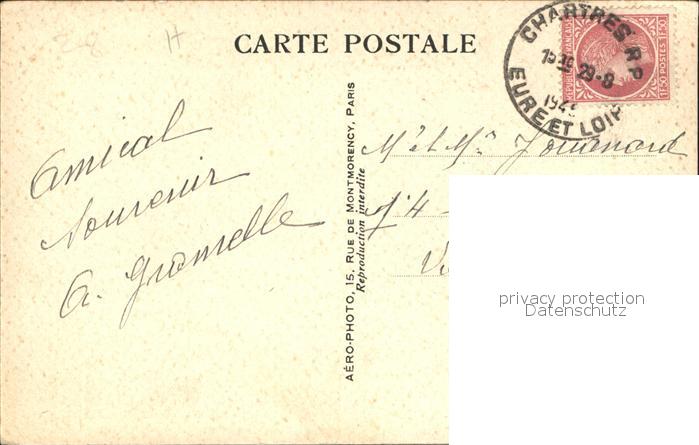 28 H
CARTE POSTALE
CHARTRES R.P.
29-8
EURE ET LOIR
REPUBLIQUE FRANÇAISE
1F50 POSTES 1F50
Amical
Souvenir
A.
AÉRO-PHOTO, 15, RUE DE MONTMORENCY, PARIS
Reproduction interdite
Mr et Mme
4
privacy protection
Datenschutz